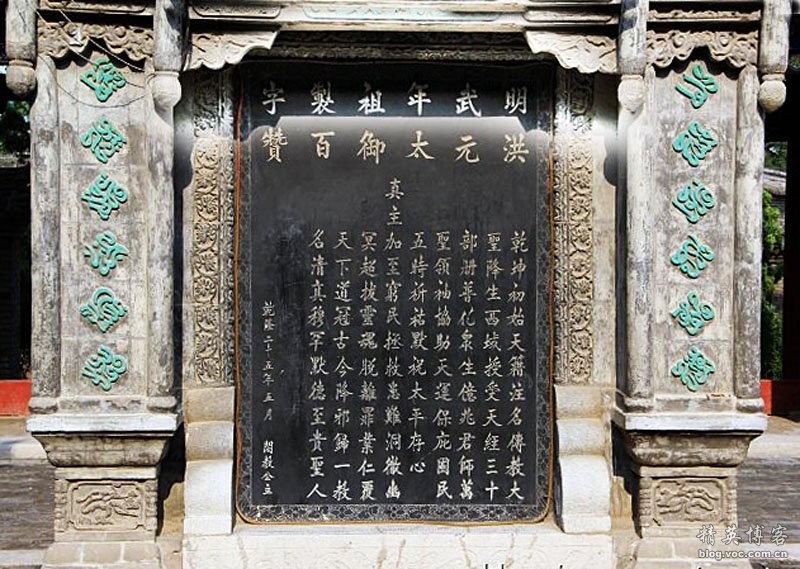 明洪
武元
年太
祖御
製百
字贊
乾坤初始天籍注名傳教大
聖降生西域授受天經三十
部冊普化眾生億兆君師萬
聖領袖協助天運保庇國民
五時祈祐默祝太平存心
真主加至窮民拯救患難洞徹幽
冥超拔靈魂脫離罪業仁覆
天下道冠古今降邪歸一教
名清真穆罕默德至貴聖人
乾隆二十五年五月 闔教公立
精英博客
blog.voc.com.cn